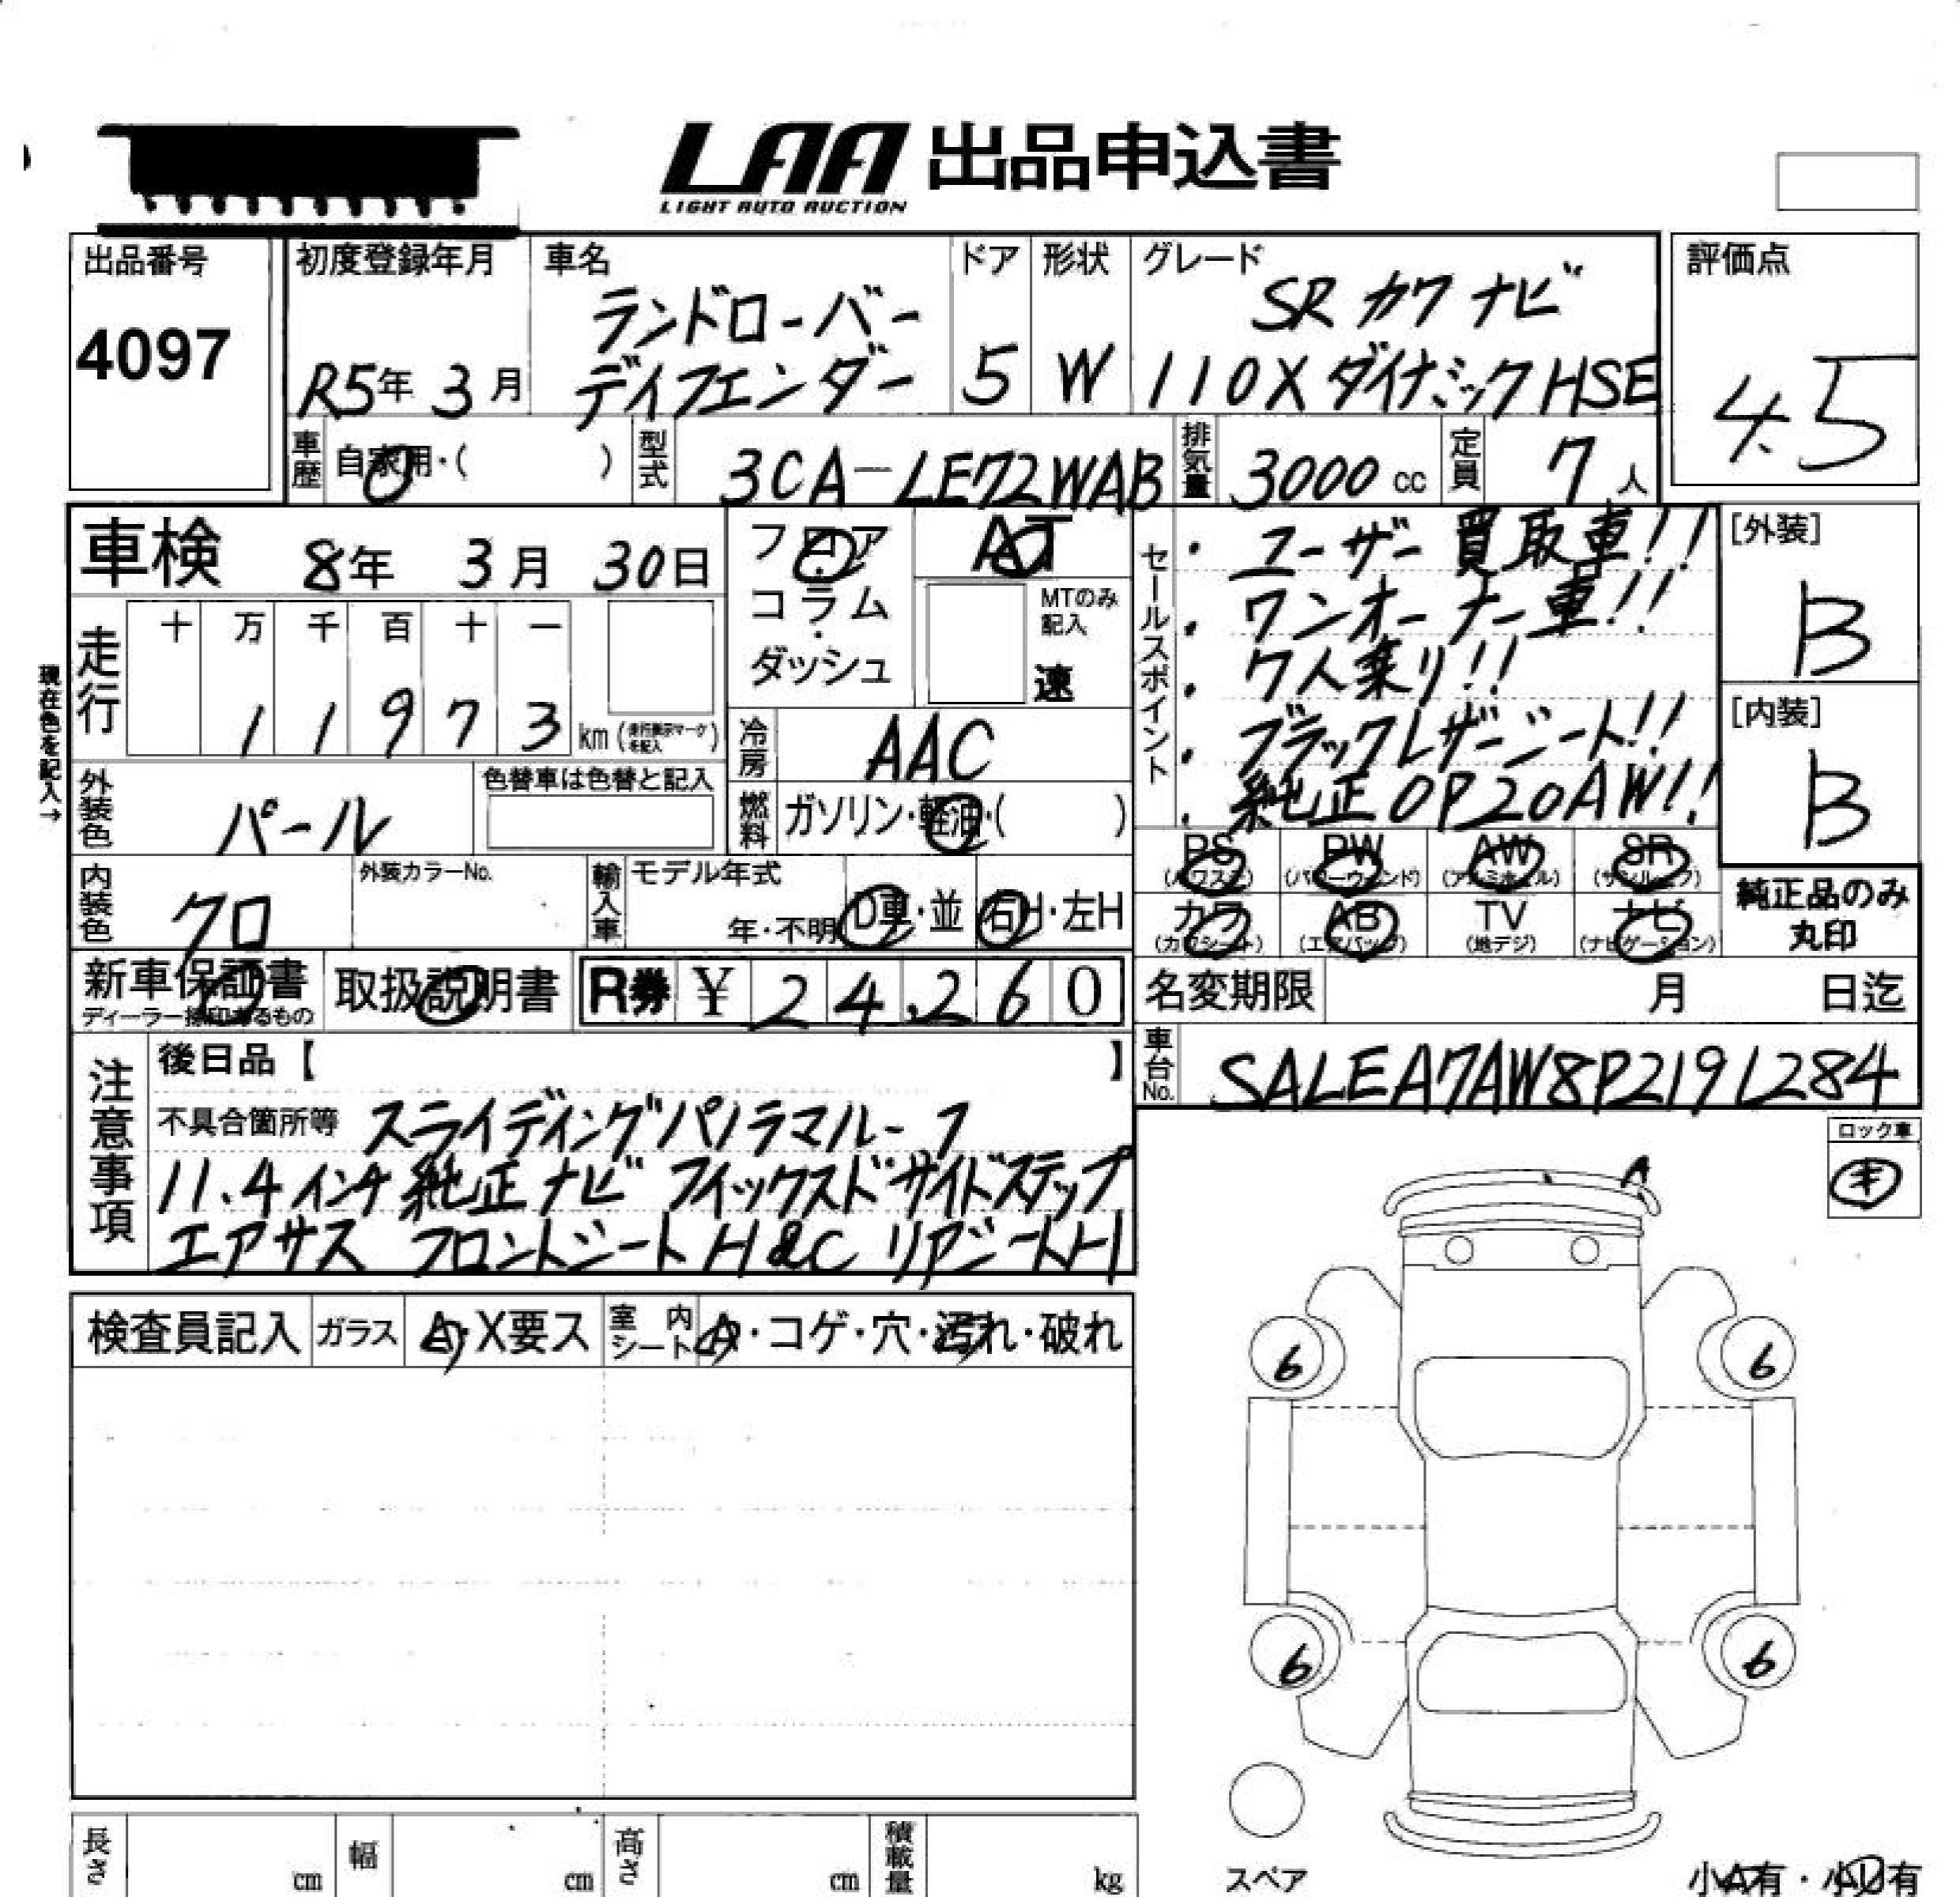 LAA 出品申込書
LIGHT AUTO AUCTION
出品番号
4097
初度登録年月
R5年 3月
車名
ランドローバー
ディフェンダー
ドア
5
形状
W
グレード
SR カワ ナビ
110XダイナミックHSE
評価点
4.5
車歴 自家用・( )
型式 3CA-LE72WAB
排気量 3000 cc
定員 7人
車検 8年 3月 30日
フロア
・
コラム
・
ダッシュ
AT
MTのみ
記入
速
現在色を記入→
走行
十 万 千 百 十 一
1 1 9 7 3 km
冷房 AAC
外装色 パール
色替車は色替と記入
燃料 ガソリン・軽油・( )
内装色 クロ
外装カラーNo.
輸入車
モデル年式
年・不明
D車・並
右H・左H
セールスポイント
・ユーザー買取車!!
・ワンオーナー車!!
・7人乗り!!
・ブラックレザーシート!!
・純正OP20AW!!
[外装]
B
[内装]
B
PS (パワステ)
PW (パワーウィンド)
AW (アルミホイル)
SR (サンルーフ)
カワ (カワシート)
AB (エアバッグ)
TV (地デジ)
ナビ (ナビゲーション)
純正品のみ
丸印
新車保証書
ディーラー捺印あるもの
取扱説明書
R券 ¥ 24,260
名変期限 月 日迄
車台No. SALEA7AW8P2191284
注意事項
後日品【 】
不具合箇所等 スライディングパノラマルーフ
11.4インチ純正ナビ フィックスドサイドステップ
エアサス フロントシートH&C リアシートH
ロック車
A
検査員記入
ガラス A・X要ス
室内シート A・コゲ・穴・汚れ・破れ
6 6
6 6
スペア
小A有・小U有
長さ cm
幅 cm
高さ cm
積載量 kg